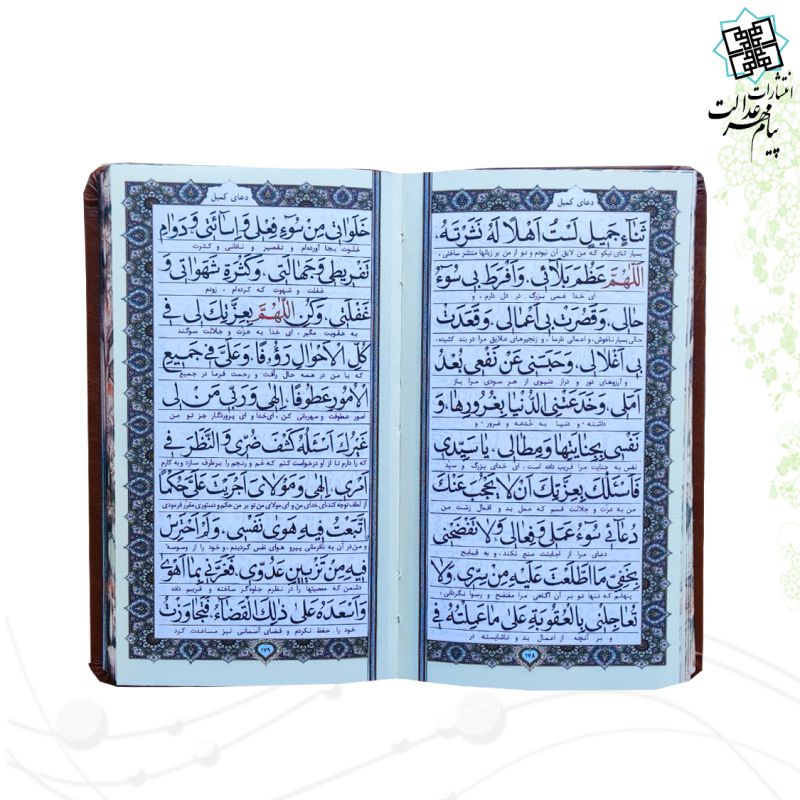 انتشارات
پیام مهر عدالت
دعای کمیل
ثَنَاءٍ جَمِيلٍ لَسْتُ اَهْلًا لَهُ نَشَرْتَهُ،
بسیار ثنای نیکو که من لایق آن نبودم و تو از من بر زبانها منتشر ساختی،
اَللّٰهُمَّ عَظُمَ بَلَائِي، وَاَفْرَطَ بِي سُوءُ
ای خدا غمی بزرگ در دل دارم، و
حَالِي، وَقَصُرَتْ بِي اَعْمَالِي، وَقَعَدَتْ
حالی بسیار ناخوش، و اعمالی نارسا، و زنجیرهای علایق مرا در بند کشیده،
بِي اَغْلَالِي، وَحَبَسَنِي عَنْ نَفْعِي بُعْدُ
و آرزوهای دور و دراز دنیوی از هر سودی مرا باز
اَمَلِي، وَخَدَعَتْنِي الدُّنْيَا بِغُرُورِهَا، وَ
داشته، و دنیا به خدعه و غرور، و
نَفْسِي بِجِنَايَتِهَا وَمِطَالِي، يَا سَيِّدِي
نفس به جنایت مرا فریب داده است، ای خدای بزرگ و سید
فَاَسْئَلُكَ بِعِزَّتِكَ اَنْ لَا يَحْجُبَ عَنْكَ
من به عزت و جلالت قسم که عمل بد و افعال زشت من
دُعَائِي سُوءُ عَمَلِي وَفِعَالِي، وَلَا تَفْضَحْنِي
دعای مرا از اجابتت منع نکند، و به قبایح
بِخَفِيِّ مَا اطَّلَعْتَ عَلَيْهِ مِنْ سِرِّي، وَلَا
پنهانم که تنها تو بر آن آگاهی مرا مفتضح و رسوا نگردانی،
تُعَاجِلْنِي بِالْعُقُوبَةِ عَلَى مَا عَمِلْتُهُ فِي
و بر آنچه از اعمال بد و ناشایسته در
۱۷۸
دعای کمیل
خَلَوَاتِي مِنْ سُوءِ فِعْلِي وَاِسَائَتِي، وَدَوَامِ
خلوت بجا آورده‌ام و تقصیر و نادانی و کثرت
تَفْرِيطِي وَجَهَالَتِي، وَكَثْرَةِ شَهَوَاتِي وَ
غفلت و شهوت که کرده‌ام، زودم
غَفْلَتِي، وَكُنِ اللّٰهُمَّ بِعِزَّتِكَ لِي فِي
به عقوبت مگیر، ای خدا به عزت و جلالت سوگند
كُلِّ الْاَحْوَالِ رَؤُفًا، وَعَلَيَّ فِي جَمِيعِ
که با من در همه حال رأفت و رحمت فرما در جمیع
الْاُمُورِ عَطُوفًا، اِلٰهِي وَرَبِّي مَنْ لِي
امور عطوفت و مهربانی کن، ای‌خدا و ای پروردگار جز تو من
غَيْرُكَ اَسْئَلُهُ كَشْفَ ضُرِّي وَالنَّظَرَ فِي
که را دارم تا از او درخواست کنم که غم و رنجم را برطرف سازد و به کارم
اَمْرِي، اِلٰهِي وَمَوْلَايَ اَجْرَيْتَ عَلَيَّ حُكْمًا
از لطف توجه کند، ای خدای من و ای مولای من تو بر من حکم و دستوری مقرر فرمودی
اتَّبَعْتُ فِيهِ هَوٰى نَفْسِي، وَلَمْ اَحْتَرِسْ
و من در آن به نافرمانی پیرو هوای نفس گردیدم، و خود را از وسوسه
فِيهِ مِنْ تَزْيِينِ عَدُوِّي، فَغَرَّنِي بِمَا اَهْوٰى
دشمن که معصیتها را در نظرم جلوه‌گر ساخته و فریبم داده
وَاَسْعَدَهُ عَلَى ذٰلِكَ الْقَضَاءُ، فَتَجَاوَزْتُ
خود را حفظ نکردم و قضای آسمانی نیز مساعدت کرد
۱۷۹